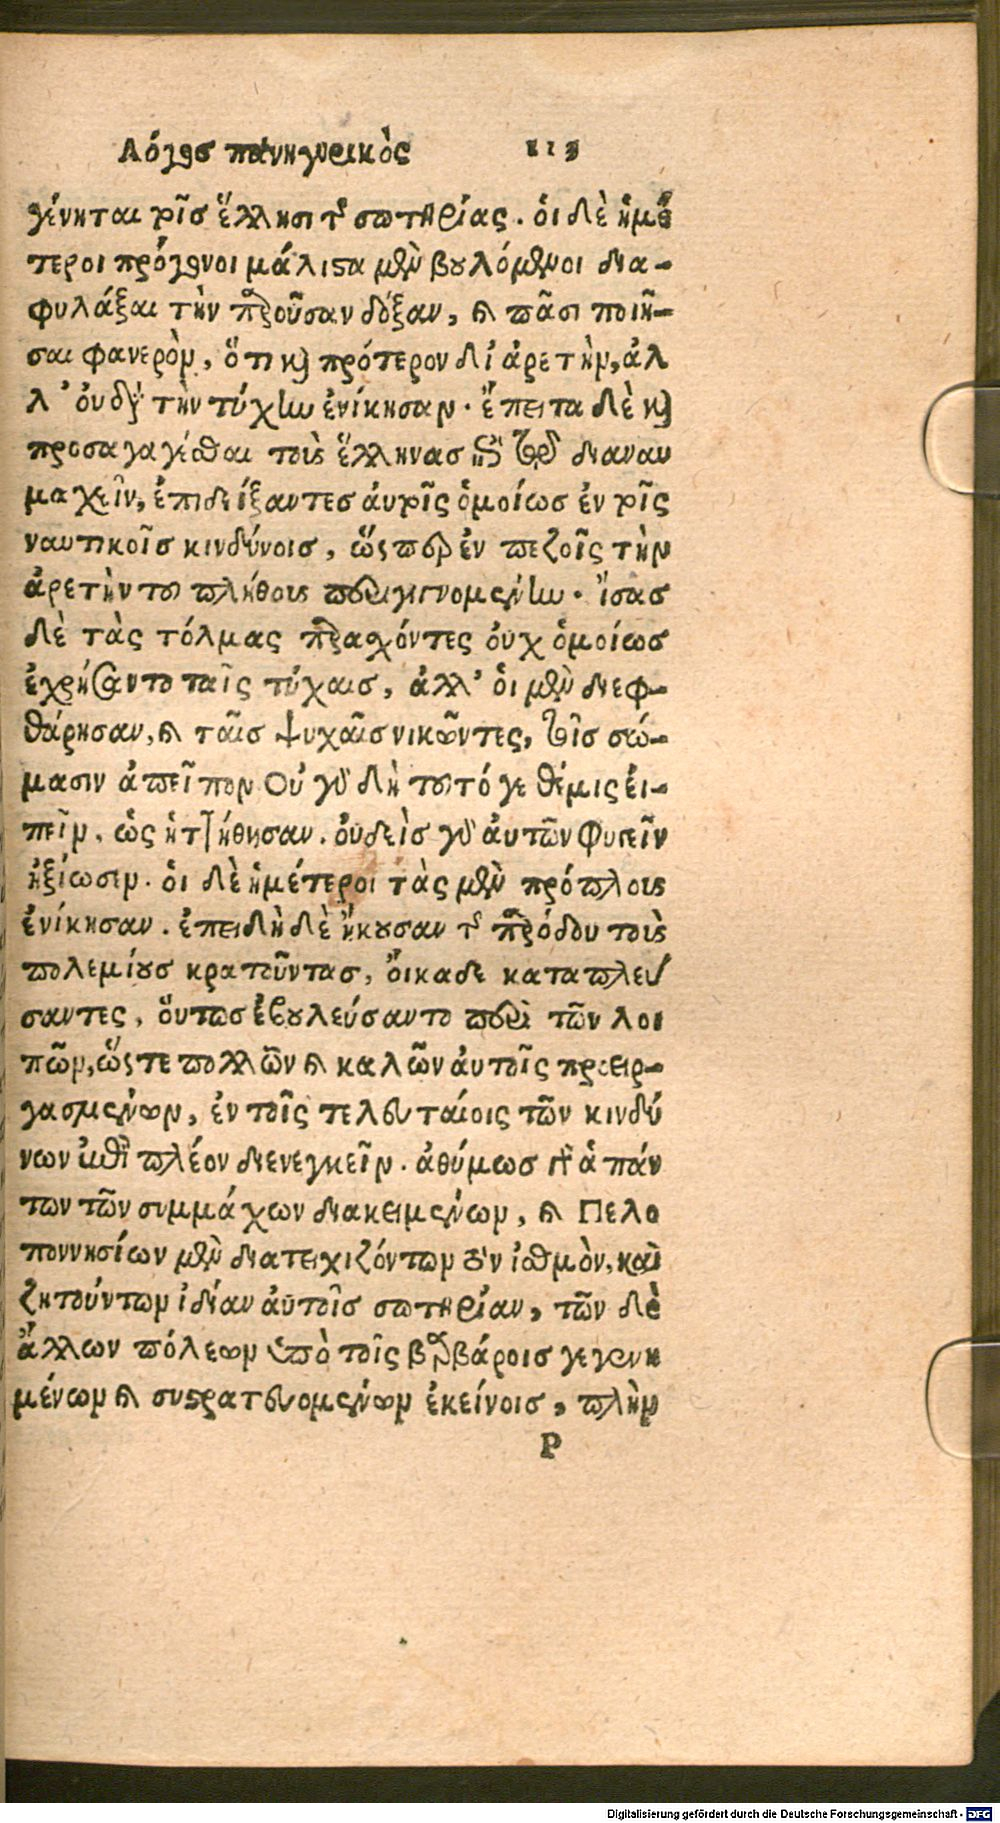 Λόγος πανηγυρικὸς 113
γένηται τοῖς ἕλλησι τῆς σωτηρίας. ὁι δὲ ἡμέ
τεροι πρόγονοι μάλιστα μὲν βουλόμενοι δια-
φυλάξαι τὴν παροῦσαν δόξαν, καὶ πᾶσι ποιῆ-
σαι φανερὸν, ὅτι καὶ πρότερον δἰ ἀρετὴν, ἀλ
λ᾽ ὀυ διὰ τὴν τύχην ἐνίκησαν. ἔπειτα δὲ καὶ
προσαγαγέσθαι τοὺς ἕλληνας ἐπὶ τὸ διαναυ
μαχεῖν, ἐπιδείξαντες ἀυτοῖς ὁμοίως ἐν τοῖς
ναυτικοῖς κινδύνοις, ὥσπερ ἐν πεζοῖς τὴν
ἀρετὴν τοῦ πλήθους περιγιγνομένην. ἴσας
δὲ τὰς τόλμας παρασχόντες ὀυχ ὁμοίως
ἐχρήσαντο ταῖς τύχαις, ἀλλ᾽ ὁι μὲν διεφ-
θάρησαν, καὶ ταῖς ψυχαῖς νικῶντες, τοῖς σώ-
μασιν ἀπεῖπον Οὐ γὰρ δὴ τοῦτό γε θέμις ἐι-
πεῖν, ὡς ἡττήθησαν. ὀυδεὶς γὰρ ἀυτῶν φυγεῖν
ἠξίωσεν. ὁι δὲ ἡμέτεροι τὰς μὲν πρόπλους
ἐνίκησαν. ἐπειδὴ δὲ ἤκουσαν τῆς παρόδου τοὺς
πολεμίους κρατοῦντας, ὄικαδε καταπλεύ
σαντες, ὅυτως ἐβουλεύσαντο περὶ τῶν λοι
πῶν, ὥστε πολλῶν καὶ καλῶν ἀυτοῖς προειρ-
γασμένων, ἐν τοῖς τελευταίοις τῶν κινδύ
νων ἔτι πλέον διενεγκεῖν. ἀθύμως γὰρ ἁπάν
των τῶν συμμάχων διακειμένων, καὶ Πελο
ποννησίων μὲν διατειχιζόντων τὸν ἰσθμὸν, καὶ
ζητούντων ἰδίαν ἀυτοῖς σωτηρίαν, τῶν δὲ
ἄλλων πόλεων ὑπὸ τοῖς βαρβάροις γεγενη
μένων καὶ συστρατευομένων ἐκείνοις, πλὴν
P
Digitalisierung gefördert durch die Deutsche Forschungsgemeinschaft - DFG